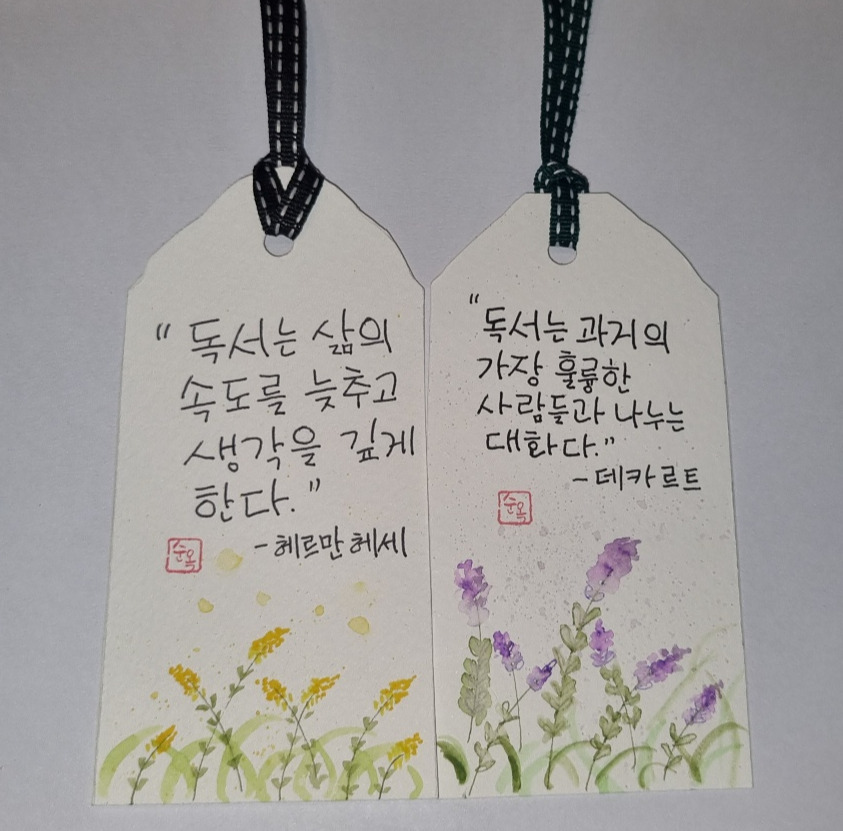 "독서는 삶의
속도를 늦추고
생각을 깊게
한다."
-헤르만 헤세
순옥
"독서는 과거의
가장 훌륭한
사람들과 나누는
대화다."
-데카르트
순옥